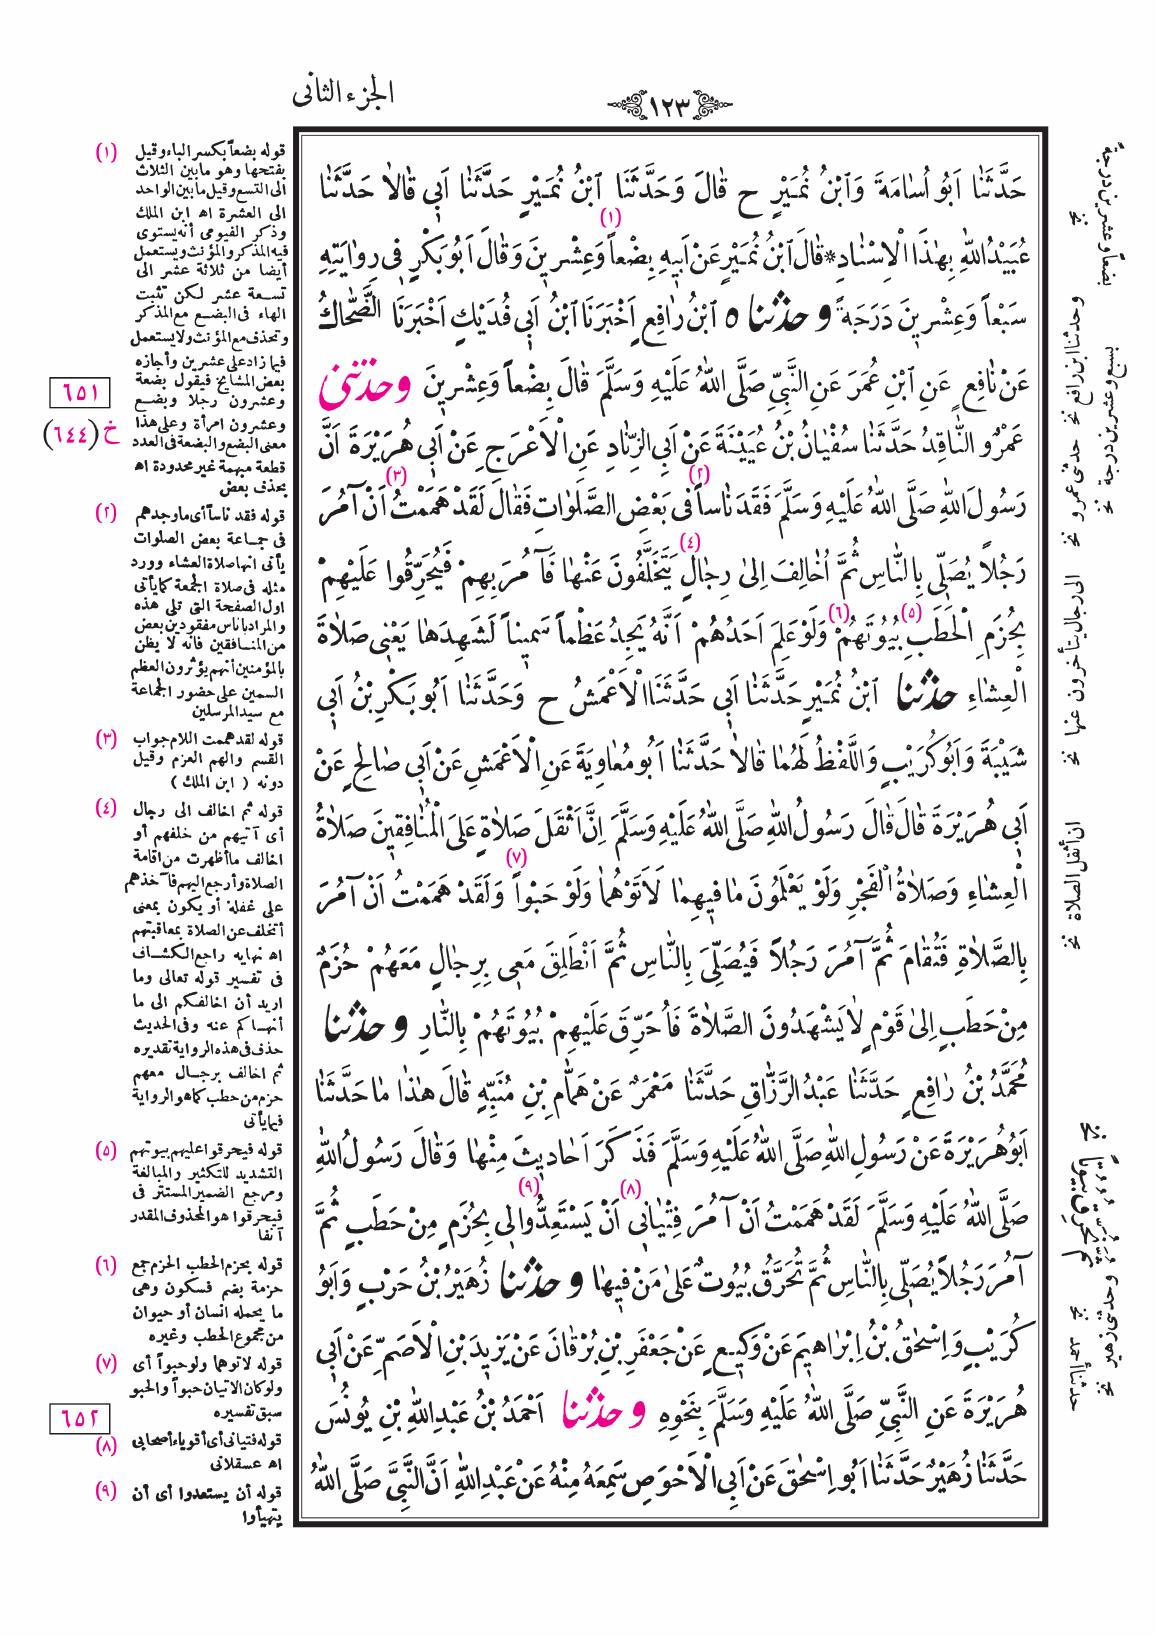 الجزء الثانى
١٢٣
حَدَّثَنَا اَبُو اُسَامَةَ وَابْنُ نُمَيْرٍ ح قَالَ وَحَدَّثَنَا ابْنُ نُمَيْرٍ حَدَّثَنَا اَبِي قَالاَ حَدَّثَنَا
عُبَيْدُ اللهِ بِهٰذَا الْاِسْنَادِ * قَالَ ابْنُ نُمَيْرٍ عَنْ اَبِيهِ بِضْعاً (١) وَعِشْرِينَ وَقَالَ اَبُو بَكْرٍ فِي رِوَايَتِهِ
سَبْعاً وَعِشْرِينَ دَرَجَةً وحدثنا ٥ ابْنُ رَافِعٍ اَخْبَرَنَا ابْنُ اَبِي فُدَيْكٍ اَخْبَرَنَا الضَّحَّاكُ
عَنْ نَافِعٍ عَنِ ابْنِ عُمَرَ عَنِ النَّبِيِّ صَلَّى اللهُ عَلَيْهِ وَسَلَّمَ قَالَ بِضْعاً وَعِشْرِينَ وحدثنى
عَمْرٌو النَّاقِدُ حَدَّثَنَا سُفْيَانُ بْنُ عُيَيْنَةَ عَنْ اَبِي الزِّنَادِ عَنِ الْاَعْرَجِ عَنْ اَبِي هُرَيْرَةَ اَنَّ
رَسُولَ اللهِ صَلَّى اللهُ عَلَيْهِ وَسَلَّمَ فَقَدَ نَاساً (٢) فِي بَعْضِ الصَّلَوَاتِ فَقَالَ لَقَدْ هَمَمْتُ (٣) اَنْ آمُرَ
رَجُلاً يُصَلِّي بِالنَّاسِ ثُمَّ اُخَالِفَ اِلىٰ رِجَالٍ (٤) يَتَخَلَّفُونَ عَنْهَا فَآمُرَ بِهِمْ فَيُحَرِّقُوا عَلَيْهِمْ
بِحُزَمِ الْحَطَبِ (٥) بُيُوتَهُمْ (٦) وَلَوْ عَلِمَ اَحَدُهُمْ اَنَّهُ يَجِدُ عَظْماً سَمِيناً لَشَهِدَهَا يَعْنِي صَلَاةَ
الْعِشَاءِ حدثنا ابْنُ نُمَيْرٍ حَدَّثَنَا اَبِي حَدَّثَنَا الْاَعْمَشُ ح وَحَدَّثَنَا اَبُو بَكْرِ بْنُ اَبِي
شَيْبَةَ وَاَبُو كُرَيْبٍ وَاللَّفْظُ لَهُمَا قَالاَ حَدَّثَنَا اَبُو مُعَاوِيَةَ عَنِ الْاَعْمَشِ عَنْ اَبِي صَالِحٍ عَنْ
اَبِي هُرَيْرَةَ قَالَ قَالَ رَسُولُ اللهِ صَلَّى اللهُ عَلَيْهِ وَسَلَّمَ اِنَّ اَثْقَلَ صَلَاةٍ عَلَى الْمُنَافِقِينَ صَلَاةُ
الْعِشَاءِ وَصَلَاةُ الْفَجْرِ وَلَوْ يَعْلَمُونَ مَا فِيهِمَا لَاَتَوْهُمَا وَلَوْ حَبْواً (٧) وَلَقَدْ هَمَمْتُ اَنْ آمُرَ
بِالصَّلَاةِ فَتُقَامَ ثُمَّ آمُرَ رَجُلاً فَيُصَلِّيَ بِالنَّاسِ ثُمَّ اَنْطَلِقَ مَعِي بِرِجَالٍ مَعَهُمْ حُزَمٌ
مِنْ حَطَبٍ اِلىٰ قَوْمٍ لَا يَشْهَدُونَ الصَّلَاةَ فَاُحَرِّقَ عَلَيْهِمْ بُيُوتَهُمْ بِالنَّارِ وحدثنا
مُحَمَّدُ بْنُ رَافِعٍ حَدَّثَنَا عَبْدُ الرَّزَّاقِ حَدَّثَنَا مَعْمَرٌ عَنْ هَمَّامِ بْنِ مُنَبِّهٍ قَالَ هٰذَا مَا حَدَّثَنَا
اَبُو هُرَيْرَةَ عَنْ رَسُولِ اللهِ صَلَّى اللهُ عَلَيْهِ وَسَلَّمَ فَذَكَرَ اَحَادِيثَ مِنْهَا وَقَالَ رَسُولُ اللهِ
صَلَّى اللهُ عَلَيْهِ وَسَلَّمَ لَقَدْ هَمَمْتُ اَنْ آمُرَ فِتْيَانِي (٨) اَنْ يَسْتَعِدُّوا (٩) لِي بِحُزَمٍ مِنْ حَطَبٍ ثُمَّ
آمُرَ رَجُلاً يُصَلِّي بِالنَّاسِ ثُمَّ تُحَرَّقُ بُيُوتٌ عَلىٰ مَنْ فِيهَا وحدثنا زُهَيْرُ بْنُ حَرْبٍ وَاَبُو
كُرَيْبٍ وَاِسْحٰقُ بْنُ اِبْرَاهِيمَ عَنْ وَكِيعٍ عَنْ جَعْفَرِ بْنِ بُرْقَانَ عَنْ يَزِيدَ بْنِ الْاَصَمِّ عَنْ اَبِي
هُرَيْرَةَ عَنِ النَّبِيِّ صَلَّى اللهُ عَلَيْهِ وَسَلَّمَ بِنَحْوِهِ وحدثنا اَحْمَدُ بْنُ عَبْدِ اللهِ بْنِ يُونُسَ
حَدَّثَنَا زُهَيْرٌ حَدَّثَنَا اَبُو اِسْحٰقَ عَنْ اَبِي الْاَحْوَصِ سَمِعَهُ مِنْهُ عَنْ عَبْدِ اللهِ اَنَّ النَّبِيَّ صَلَّى اللهُ
بضعاً وعشرين درجةً نخ
بسبع وعشرين درجة نخ
وحدثنا ابن رافع نخ
حدثنى عمرو نخ
الى رجال يتأخرون عنها نخ
ان أثقل الصلاة نخ
ثم تُحَرَّق بيوتاً نخ
وحدثنى زهير نخ
حدثنا احمد نخ
(١) قوله بضعاً بكسر الباء وقيل
بفتحها وهو مابين الثلاث
الى التسع وقيل مابين الواحد
الى العشرة اه ابن الملك
وذكر الفيومى أنه يستوى
فيه المذكر والمؤنث ويستعمل
أيضا من ثلاثة عشر الى
تسعة عشر لكن تثبت
الهاء فى البضع مع المذكر
وتحذف مع المؤنث ولا يستعمل
فيما زاد على عشرين وأجازه
بعض المشايخ فيقول بضعة
وعشرون رجلا وبضع
وعشرون امرأة وعلى هذا
معنى البضع والبضعة فى العدد
قطعة مبهمة غير محدودة اه
بحذف بعض
٦٥١
خ (٦٤٤)
(٢) قوله فقد ناساً أى ماوجدهم
فى جماعة بعض الصلوات
يأتى انها صلاة العشاء وورد
مثله فى صلاة الجمعة كما يأتى
اول الصفحة التى تلى هذه
والمراد باناس مفقودين بعض
من المنافقين فانه لا يظن
بالمؤمنين أنهم يؤثرون العظم
السمين على حضور الجماعة
مع سيد المرسلين
(٣) قوله لقد هممت اللام جواب
القسم والهم العزم وقيل
دونه ( ابن الملك )
(٤) قوله ثم اخالف الى رجال
أى آتيهم من خلفهم أو
اخالف ماأظهرت من اقامة
الصلاة وأرجع اليهم فآخذهم
على غفلة أو يكون بمعنى
أتخلف عن الصلاة بمعاقبتهم
اه نهايه راجع الكشاف
فى تفسير قوله تعالى وما
اريد أن اخالفكم الى ما
أنهاكم عنه وفى الحديث
حذف فى هذه الرواية تقديره
ثم اخالف برجال معهم
حزم من حطب كما هو الرواية
فيما يأتى
(٥) قوله فيحرقوا عليهم بيوتهم
التشديد للتكثير والمبالغة
ومرجع الضمير المستتر فى
فيحرقوا هو المحذوف المقدر
آنفا
(٦) قوله بحزم الحطب الحزم جمع
حزمة بضم فسكون وهى
ما يحمله انسان أو حيوان
من مجموع الحطب وغيره
(٧) قوله لاتوهما ولو حبواً أى
ولو كان الاتيان حبواً والحبو
سبق تفسيره
٦٥٢
(٨) قوله فتيانى أى أقوياء أصحابى
اه عسقلانى
(٩) قوله أن يستعدوا أى أن
يتهيأوا